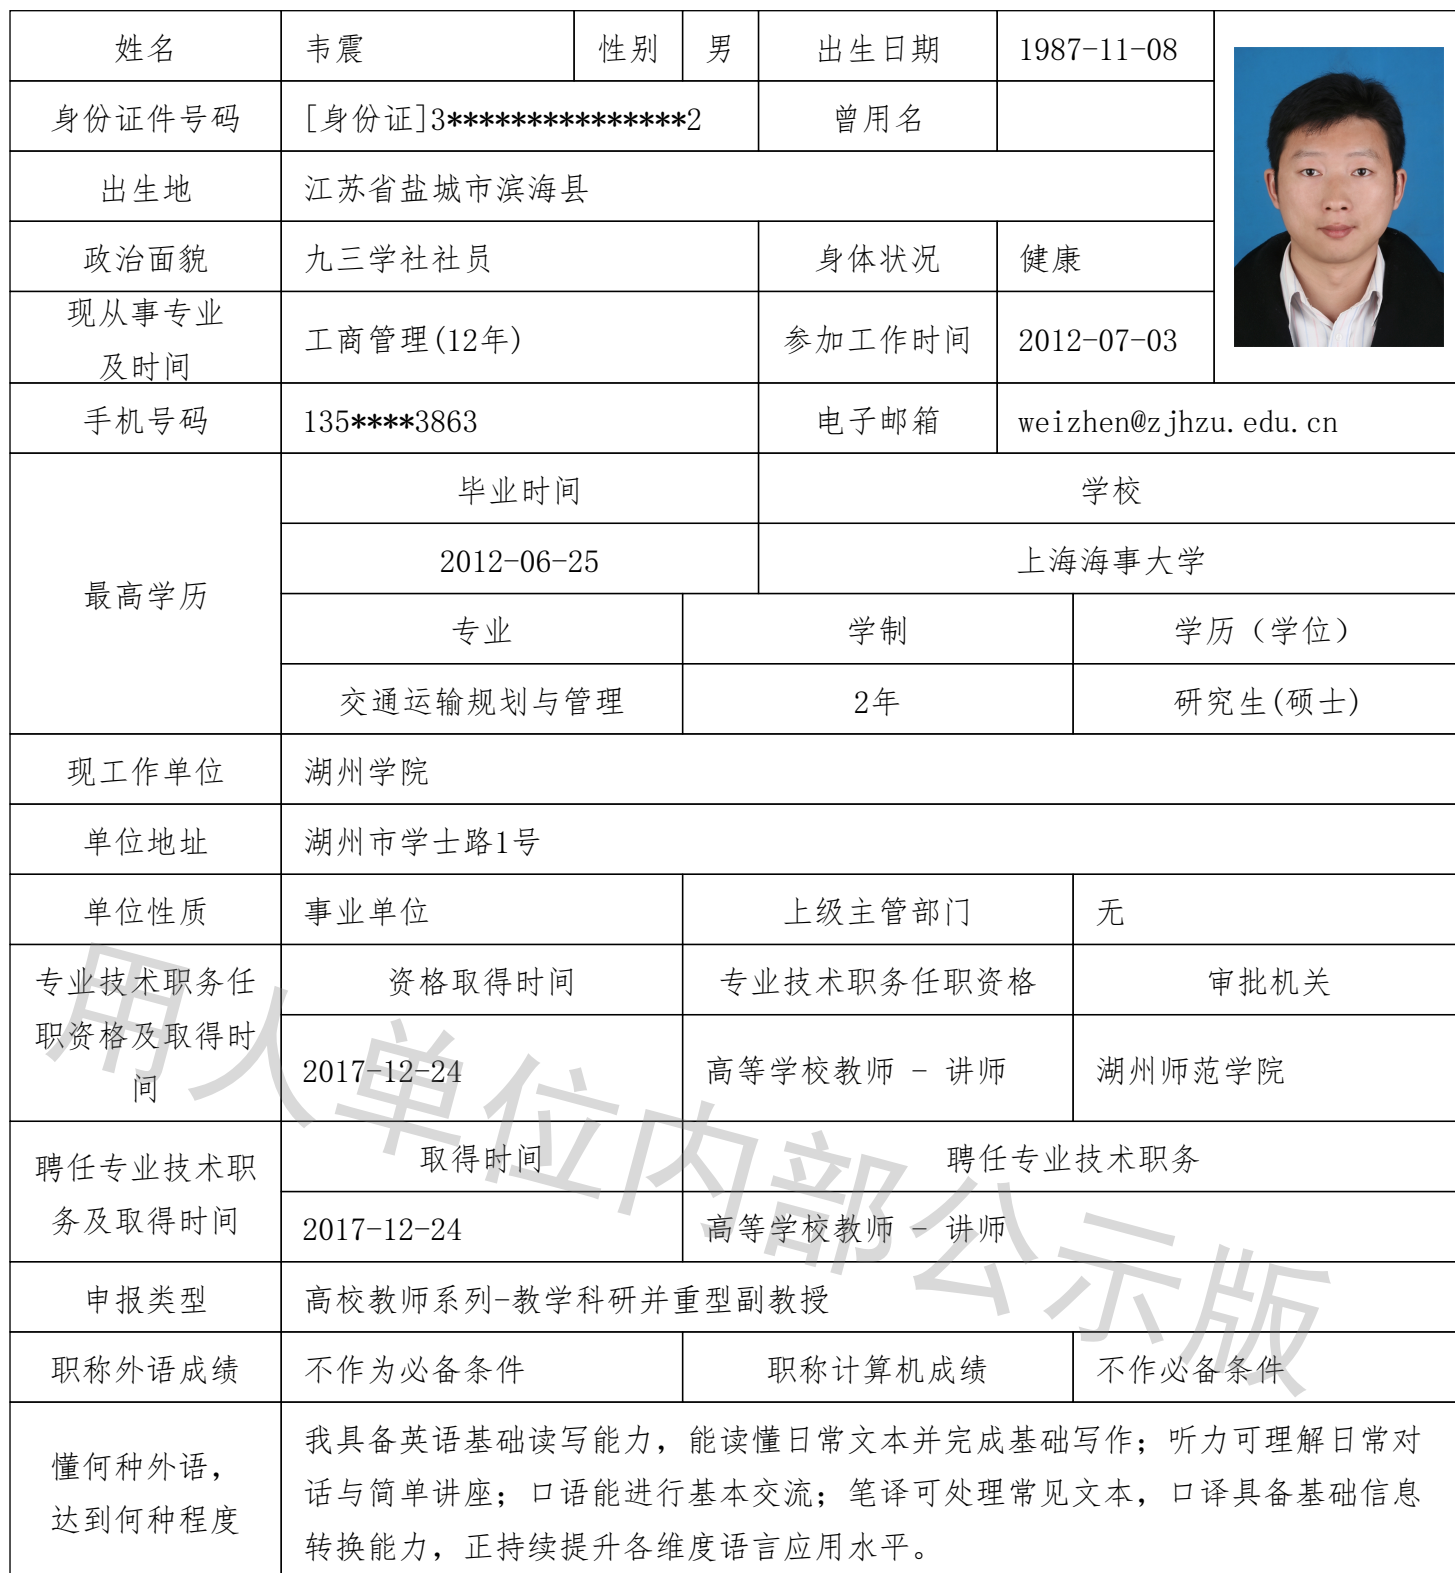 姓名 韦震 性别 男 出生日期 1987-11-08
身份证件号码 [身份证]3***************2 曾用名
出生地 江苏省盐城市滨海县
政治面貌 九三学社社员 身体状况 健康
现从事专业
及时间 工商管理(12年) 参加工作时间 2012-07-03
手机号码 135****3863 电子邮箱 weizhen@zjhzu.edu.cn
最高学历
毕业时间 学校
2012-06-25 上海海事大学
专业 学制 学历（学位）
交通运输规划与管理 2年 研究生(硕士)
现工作单位 湖州学院
单位地址 湖州市学士路1号
单位性质 事业单位 上级主管部门 无
专业技术职务任
职资格及取得时
间
资格取得时间 专业技术职务任职资格 审批机关
2017-12-24 高等学校教师 - 讲师 湖州师范学院
聘任专业技术职
务及取得时间
取得时间 聘任专业技术职务
2017-12-24 高等学校教师 - 讲师
申报类型 高校教师系列-教学科研并重型副教授
职称外语成绩 不作为必备条件 职称计算机成绩 不作必备条件
懂何种外语，
达到何种程度
我具备英语基础读写能力，能读懂日常文本并完成基础写作；听力可理解日常对
话与简单讲座；口语能进行基本交流；笔译可处理常见文本，口译具备基础信息
转换能力，正持续提升各维度语言应用水平。
用人单位内部公示版